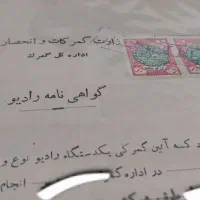 وزارت گمرکات و انحصار
اداره کل گمرک
گواهی نامه رادیو
که آئین گمرکی یکدستگاه رادیو نوع و
در اداره گمرک
انجام